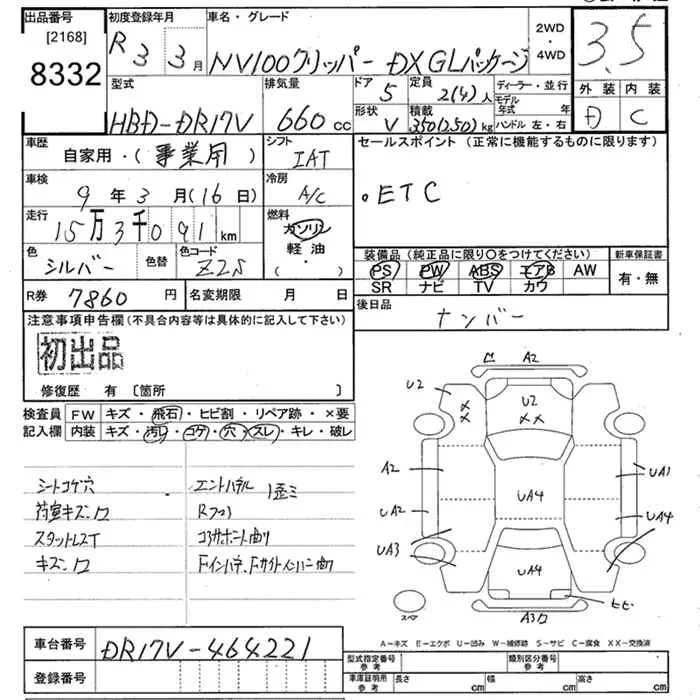 出品番号 初度登録年月 車名・グレード
[2168]
8332
R 3 3月 NV100クリッパー DX GLパッケージ
2WD・4WD
3.5
型式 排気量 ドア 定員 ディーラー・並行
HBD-DR17V 660cc 5 2(4)人
モデル年式 年
形状 積載 ハンドル 左・右
V 350(250)kg
外装 内装
D C
車歴 シフト セールスポイント (正常に機能するものに限ります)
自家用・(事業用) IAT
車検 冷房
9年3月(16日) A/C
・ETC
走行 燃料
15万3千091km ガソリン
軽油
(・)
色 色替 色コード
シルバー Z2S
装備品 (純正品に限り○をつけてください) 新車保証書
PS PW ABS エアB AW 有・無
SR ナビ TV カワ
R券 7860円 名変期限 月 日
後日品
ナンバー
注意事項申告欄(不具合内容等は具体的に記入して下さい)
初出品
修復歴 有 〔箇所 〕
検査員 FW キズ・飛石・ヒビ割・リペア跡・×要
記入欄 内装 キズ・汚れ・コゲ・穴・スレ・キレ・破レ
シートコゲ穴 エンドパネル 歪ミ
荷室キズ
スタットレスT コアサポート曲り
キズ
A2
U2 U2
XX XX
A2 UA4 UA1
UA2 UA4
UA3 UA4
ヒビ
スペア A3
A－キズ E－エクボ U－凹み W－補修跡 S－サビ C－腐食 XX－交換済
車台番号 DR17V-464221
型式指定番号 参考 類別区分番号 参考
登録番号
車庫証明用 参考 長さ cm 幅 cm 高さ cm